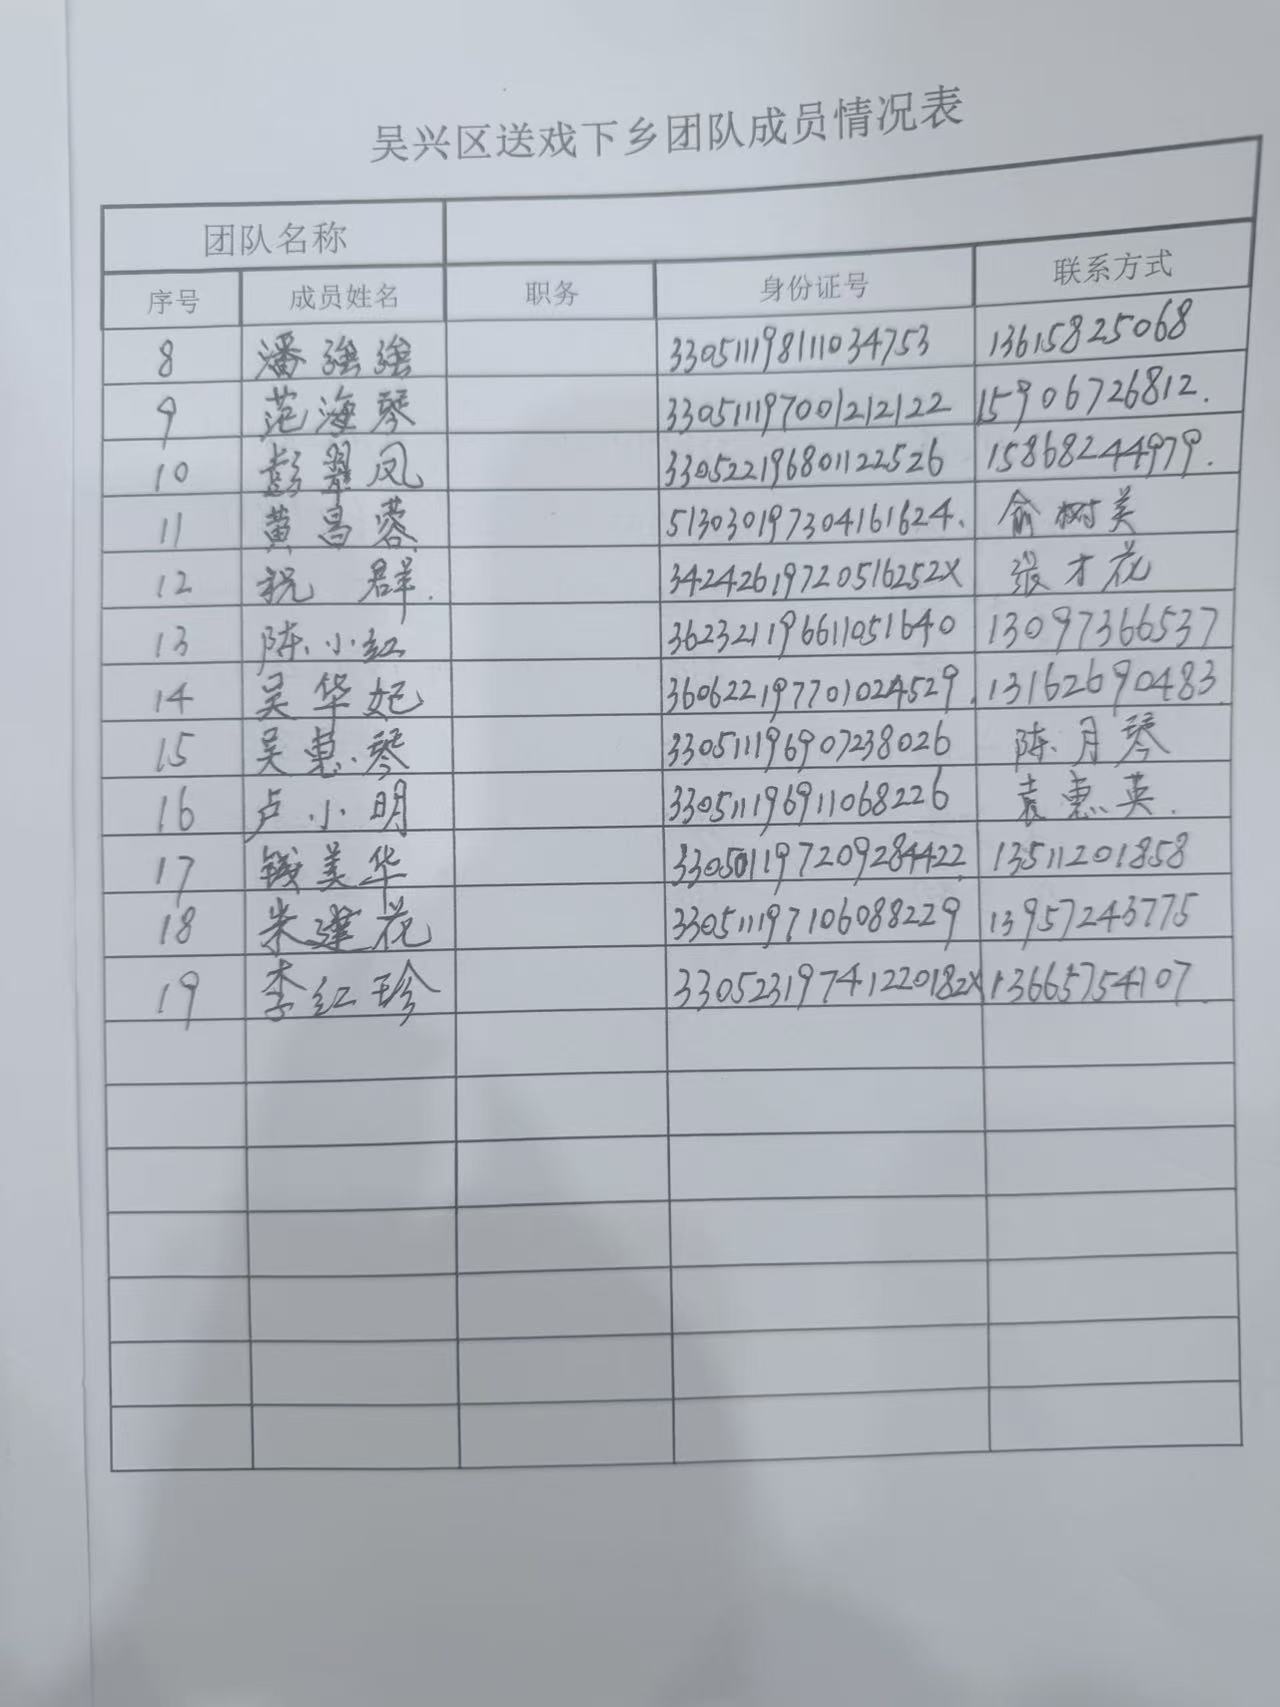 吴兴区送戏下乡团队成员情况表
团队名称
序号 成员姓名 职务 身份证号 联系方式
8 潘强強 330511198111034753 13615825068
9 范海琴 330511197001212122 15906726812.
10 彭翠凤 330522196801122526 15868244979.
11 黄昌蓉 513030197304161624. 俞树美
12 祝群. 34242619720516252X 張才花
13 陈小红 362321196611051640 13097366537
14 吴华妃 360622197701024529. 13162690483.
15 吴惠琴 330511196907238026 陈月琴
16 卢小明 330511196911068226 袁惠英.
17 钱美华 330501197209284422 13511201858
18 朱建花 330511197106088229 13957243775
19 李红珍 33052319741220182X 13665754107.